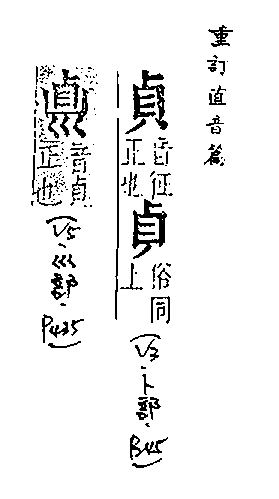 重訂直音篇
貞
音征
正也
貞
俗同
上
V3.卜部.
音貞
正也
V5.巛部.
P425